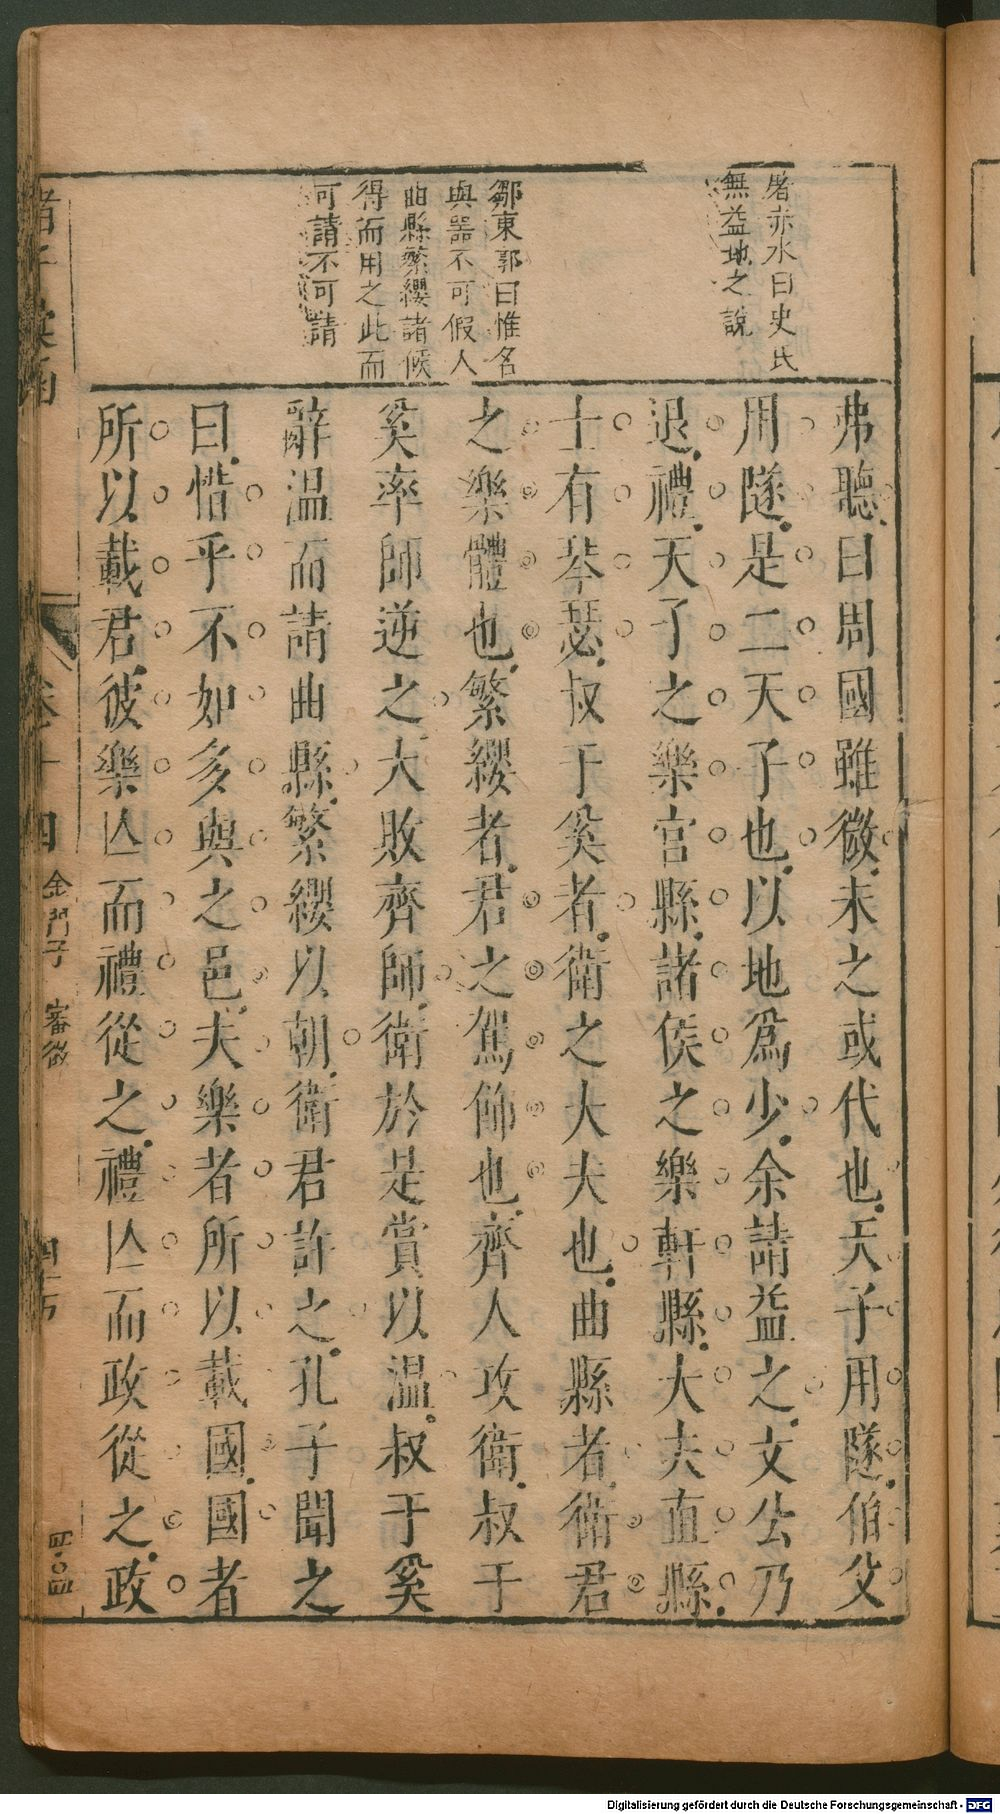 屠赤水曰史氏
無益地之說
鄒東郭曰惟名
與器不可假人
曲縣繁纓諸候
得而用之此而
可請不可請
弗聽曰周國雖微未之或代也天子用隧伯父
用隧是二天子也以地爲少余請益之文公乃
退禮天子之樂宫縣諸侯之樂軒縣大夫直縣
士有琴瑟叔于奚者衛之大夫也曲縣者衛君
之樂體也繁纓者君之駕飾也齊人攻衛叔于
奚率師逆之大敗齊師衛於是賞以温叔于奚
辭温而請曲縣繁纓以朝衛君許之孔子聞之
曰惜乎不如多與之邑夫樂者所以載國國者
所以載君彼樂亾而禮從之禮亾而政從之政
諸子彙函
卷十四
金門子 審微
四十六
四〇四
Digitalisierung gefördert durch die Deutsche Forschungsgemeinschaft - DFG